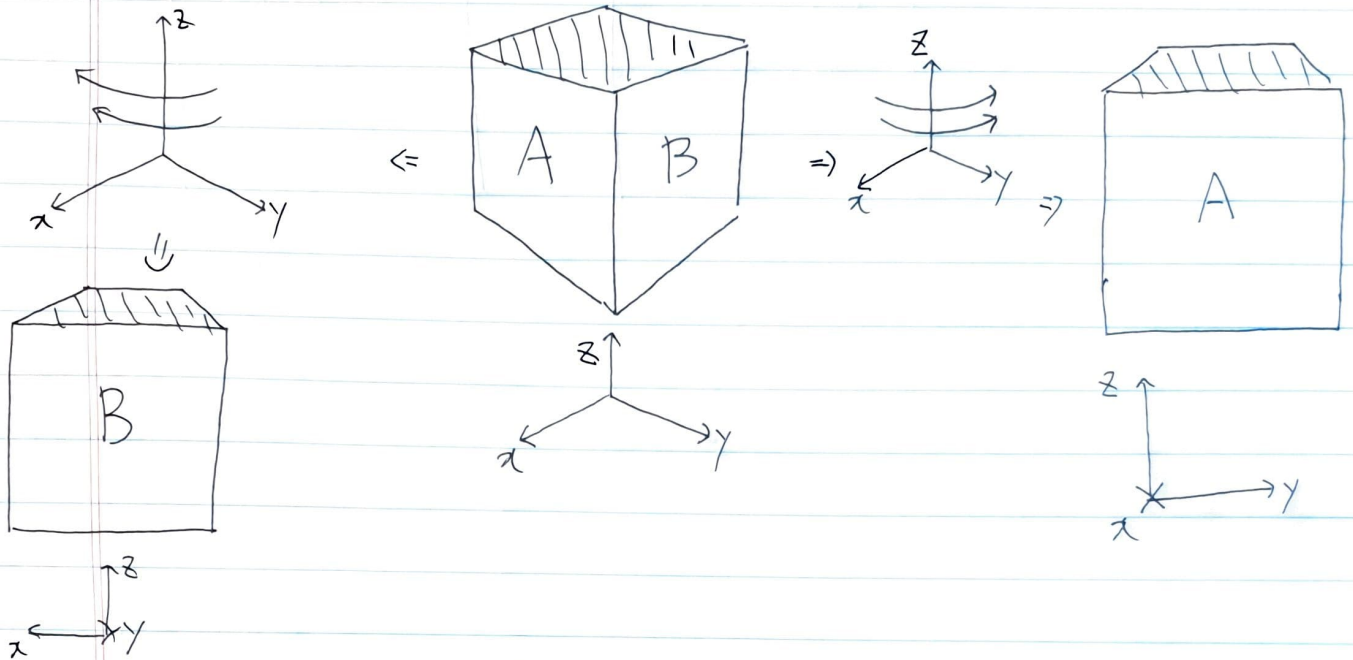 Z
x
Y
⇐
A
B
⇒
Z
x
Y
⇒
A
⇓
B
Z
x
Y
Z
x
Y
Z
x
Y